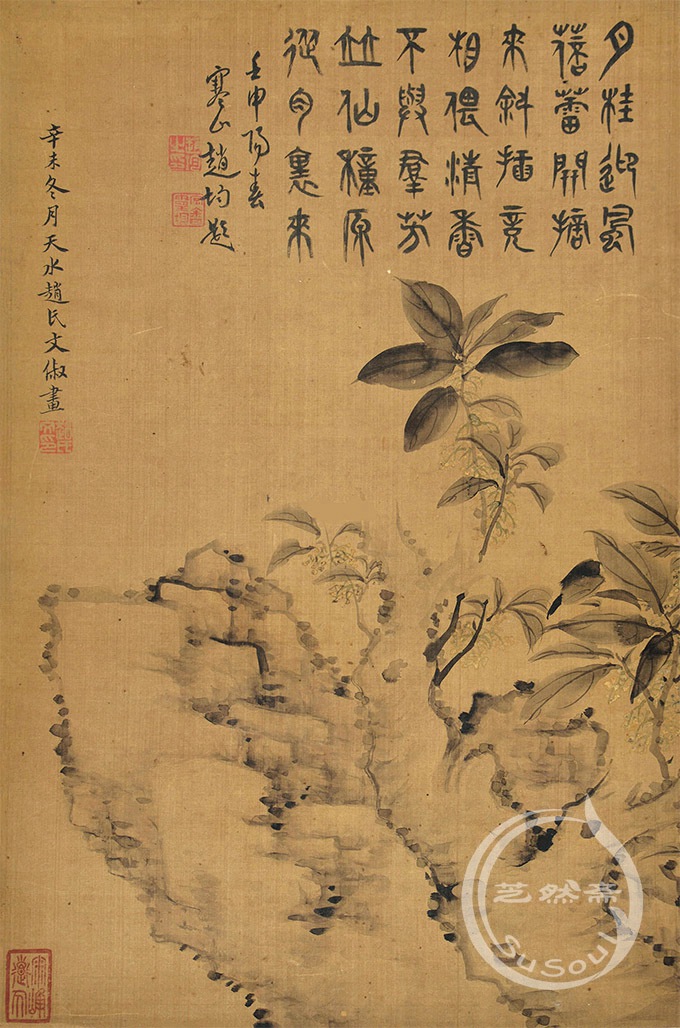 月桂迎風
蓓蕾開摘
來斜插竟
相偎清香
不與羣芳
竝仙種原
從月裏來
壬申陽春
寒山趙均題
辛未冬月天水趙氏文俶畫
芝然斋
SuSoul